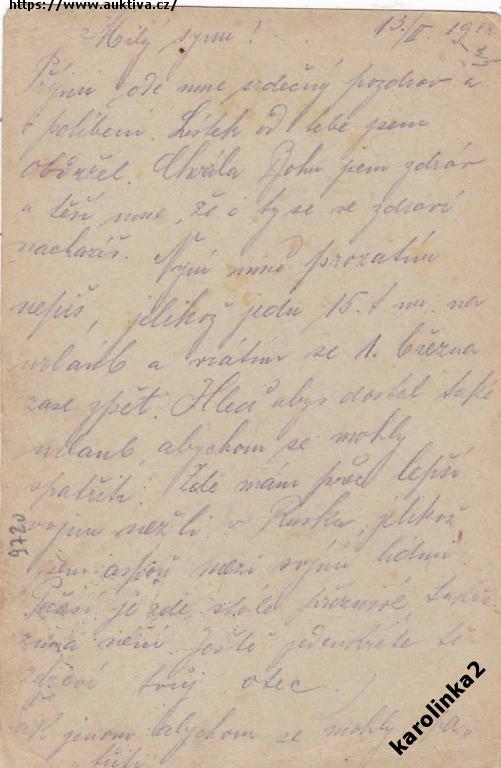 https://www.auktiva.cz/
Milý synu! 13./II. 191
Přijmi ode mne srdečný pozdrav a
políbení. Lístek od tebe jsem
obdržel. Chvála Bohu jsem zdráv
a těší mne, že i ty se ve zdraví
nacházíš. Nyní mně prozatím
nepiš, jelikož jedu 15. t. m. na
urlaub a vrátím se 1. března
zase zpět. Hleď abys dostal také
urlaub, abychom se mohly
spatřit. Zde mám lepší
vojnu nežli v Rusku, jelikož
jsem aspoň mezi svými lidmi.
Počasí je zde stále příznivé, takže
zima není. Ještě jedenkráte tě
zdraví tvůj otec.
jenom abychom se mohly
9720
karolinka2